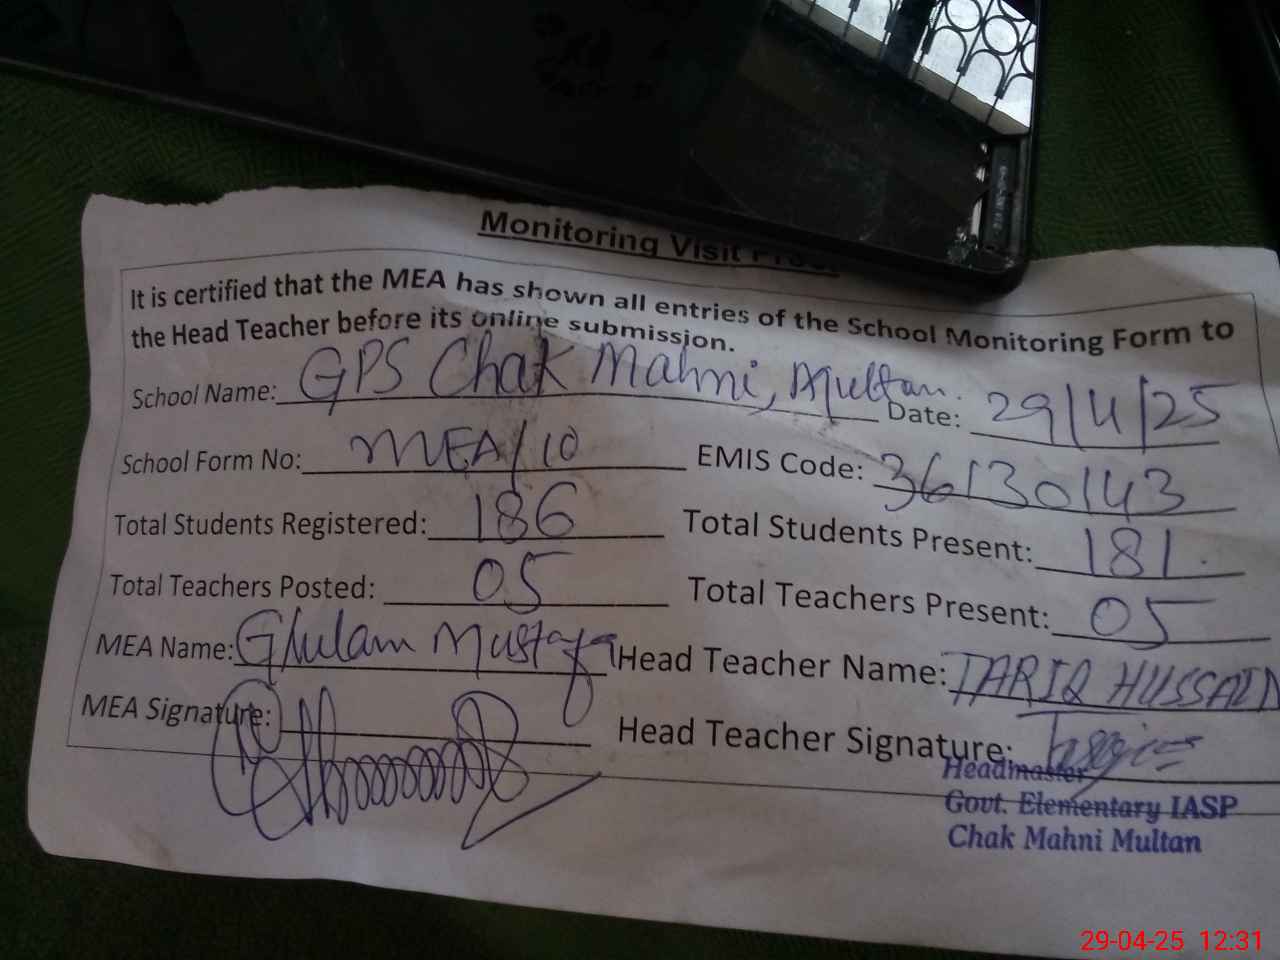 Monitoring Visit Proof
It is certified that the MEA has shown all entries of the School Monitoring Form to
the Head Teacher before its online submission.
School Name: GPS Chak Mahni, Multan. Date: 29/4/25
School Form No: MEA/10 EMIS Code: 36130143
Total Students Registered: 186 Total Students Present: 181.
Total Teachers Posted: 05 Total Teachers Present: 05
MEA Name: Ghulam Mustafa Head Teacher Name: TARIQ HUSSAIN
MEA Signature: Head Teacher Signature:
Headmaster
Govt. Elementary IASP
Chak Mahni Multan
29-04-25 12:31